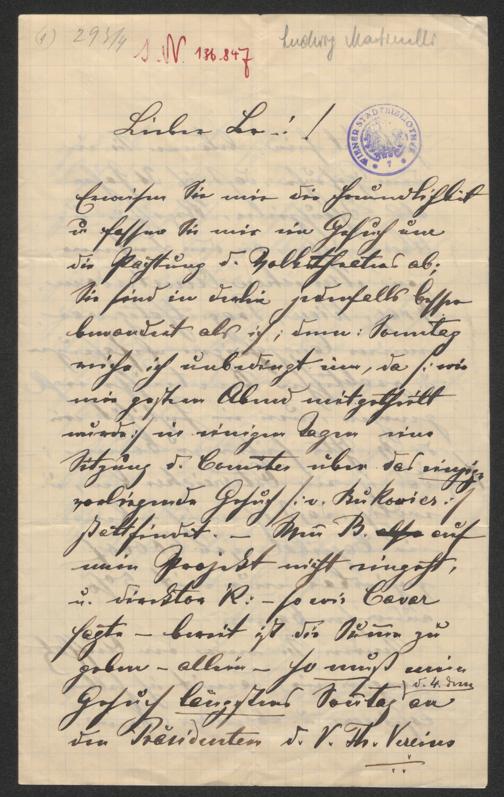 (1) 293/4
I. N. 136.847
Ludwig Martinelli
WIENER STADTBIBLIOTHEK
Lieber
Erweisen Sie mir die Freundlichkeit
u fassen Sie mir ein Gesuch um
die Pachtung d. Volkstheaters ab,
Sie sind in derlei jedenfalls besser
bewandert als ich; denn: Sonntag
reiche ich unbedingt ein, da /: wie
mir gestern Abend mitgetheilt
wurde :/ in einigen Tagen eine
Sitzung d. Comités über das einzig
vorliegende Gesuch /: v. Bukovics :/
stattfindet. – Wenn B. auf
mein Projekt nicht eingeht,
u. Direktor R: – so wie
sagte – bereit ist die Summe zu
geben – allein – so muß mein
Gesuch längstens Sonntag d. 4. an
den Präsidenten d. V. Th. Vereins